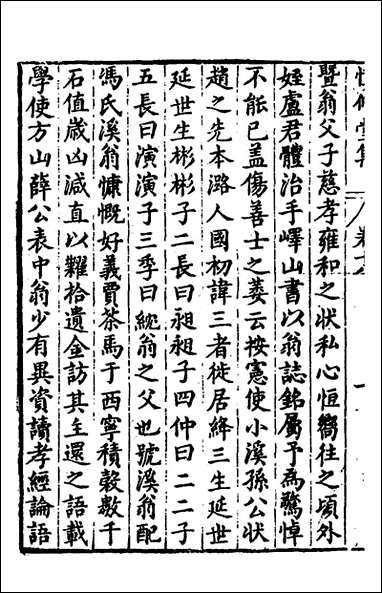 暨翁父子慈孝雍和之狀私心恒嚮往之頃外
姪盧君體治手嶧山書以翁誌銘屬予為驚悼
不能已盖傷善士之萎云按憲使小溪孫公狀
趙之先本潞人國初諱三者徙居絳三生延世
延世生彬彬子二長曰昶昶子四仲曰二二子
五長曰演演子三季曰綂翁之父也號溪翁配
馮氏溪翁慷慨好義賈茶馬于西寧積穀數千
石值歲凶減直以糶拾遺金訪其主還之語載
學使方山薛公表中翁少有異資讀孝經論語